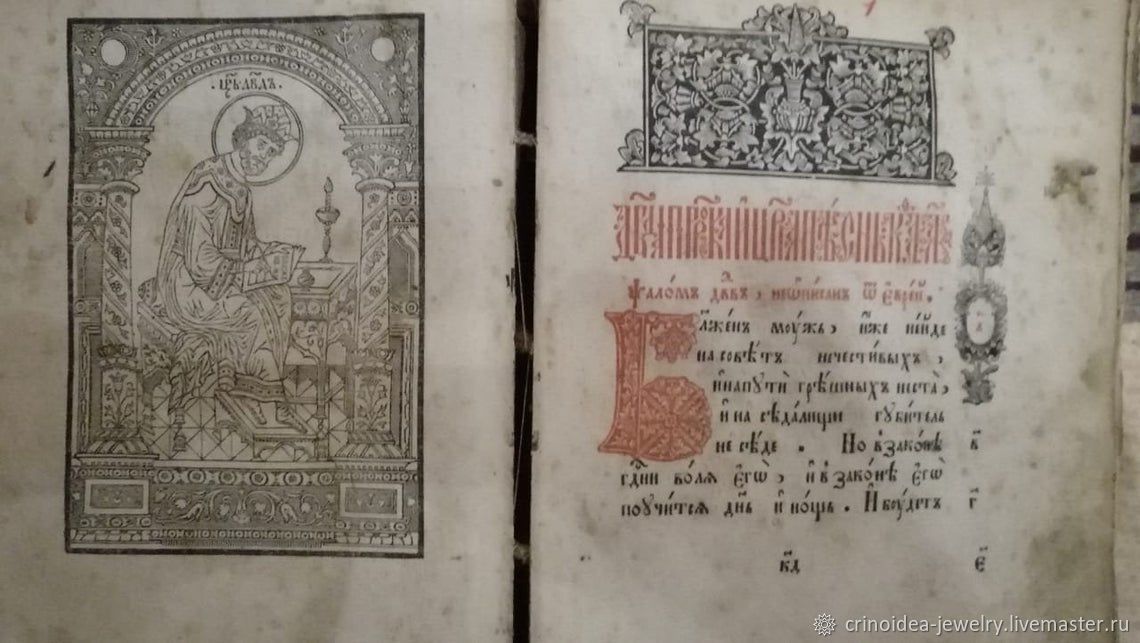 цр҃ь дв҃дъ
1
дв҃да прⷪ҇рока и цр҃ѧ пѣснь
ѱаломъ дв҃дъ, неѡписан ѿ еврѣи҆.
Блаже́нъ моу́жъ, и҆́же не и҆́де
на совѣ́тъ нечести́выхъ,
и҆ на путѝ грѣ́шныхъ не ста̀,
и҆ на сѣда́лищи губи́тель
не сѣ́де. Но в̾ зако́нѣ в҃
гдⷭ҇ни во́лѧ є҆гѡ̀, и҆ в̾ зако́нѣ є҆гѡ̀
поучи́тсѧ дн҃ь и҆ но́щь. И҆ бꙋ́детъ г҃
к҃д є҃
crinoidea-jewelry.livemaster.ru